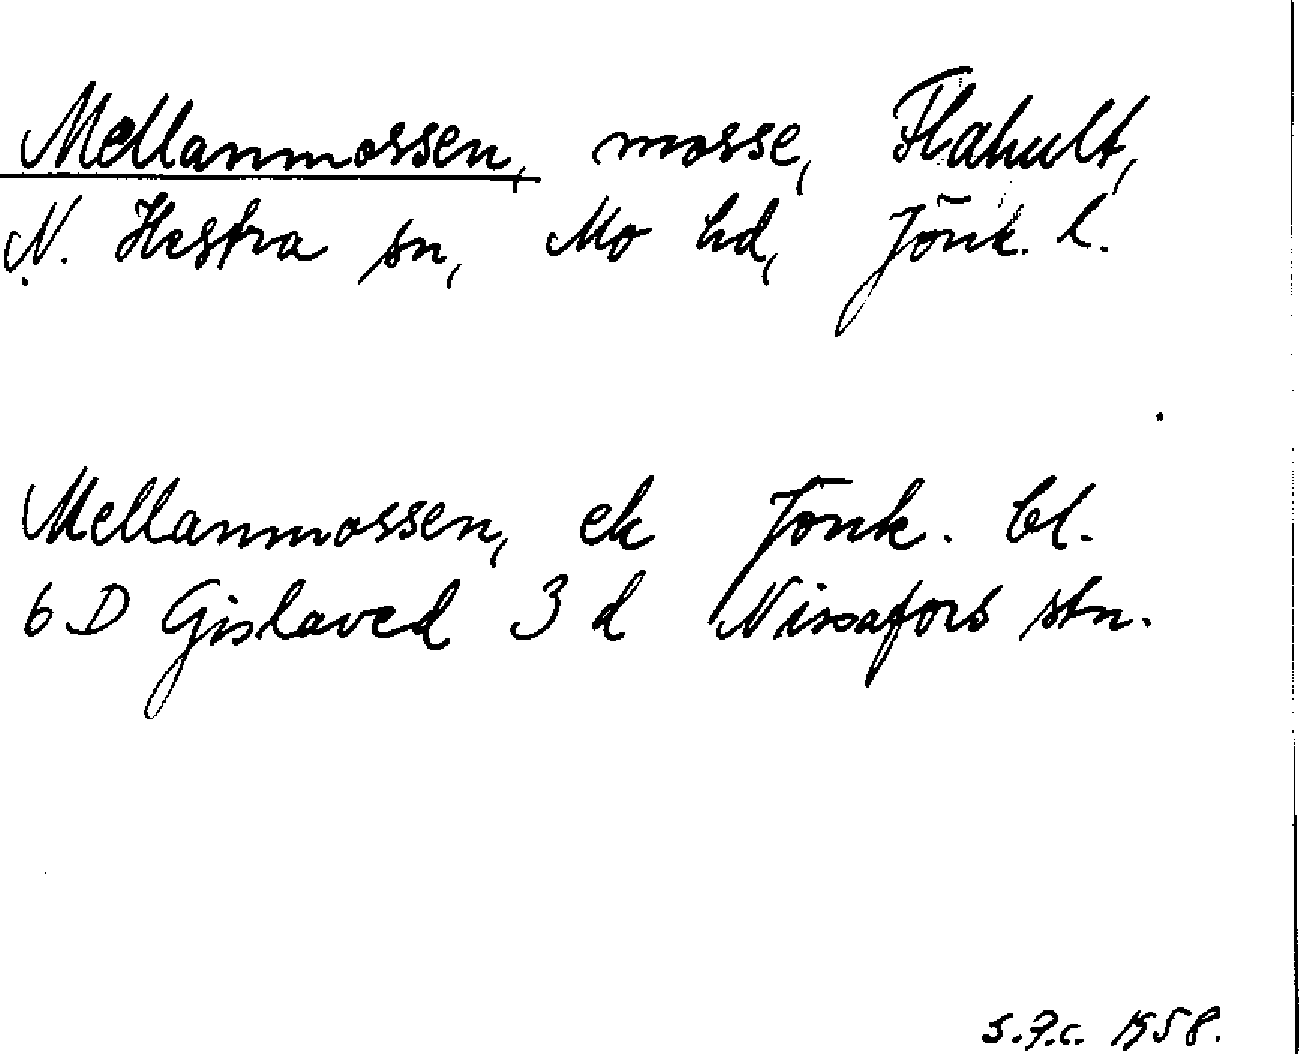 Mellanmossen, mosse, Flahult,
N. Hestra sn, Mo hd, Jönk. l.
Mellanmossen, ek Jönk. bl.
6 D Gislaved 3 d Nissafors stn.
1958.